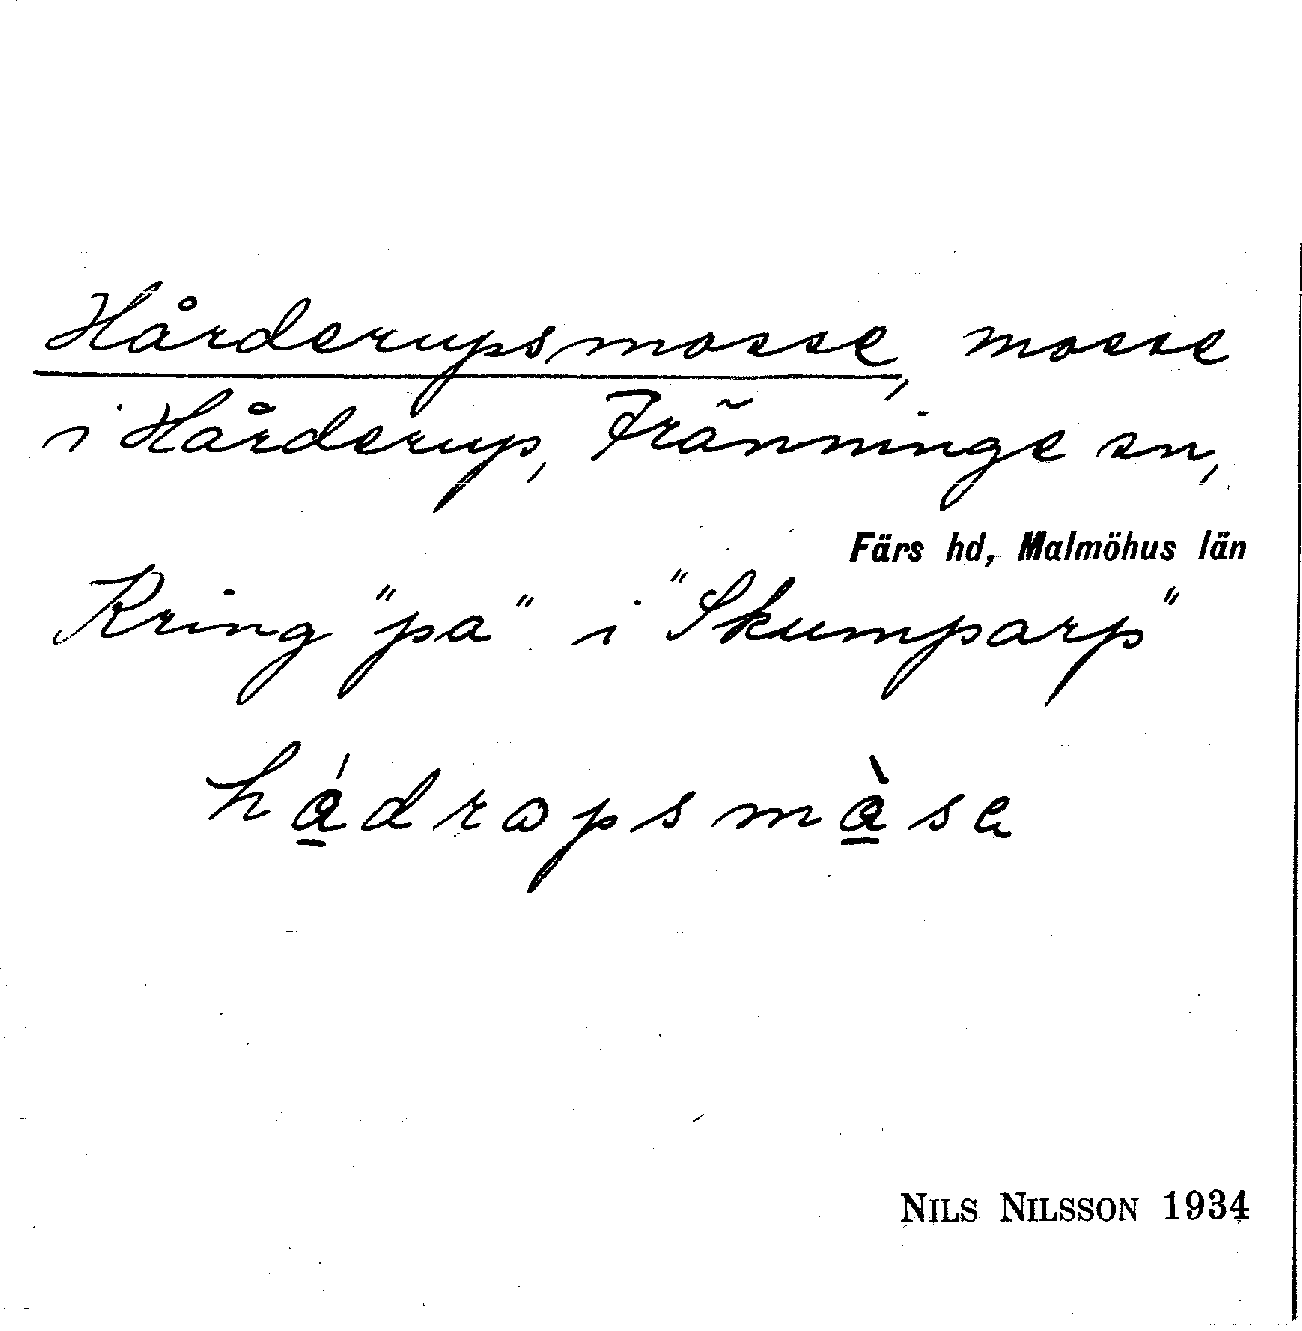 Hårderupsmosse, mosse
i Hårderup, Tränninge sn,
Färs hd, Malmöhus län
Kring "pa" i "Skumparp"
hádrapsmàsa
NILS NILSSON 1934